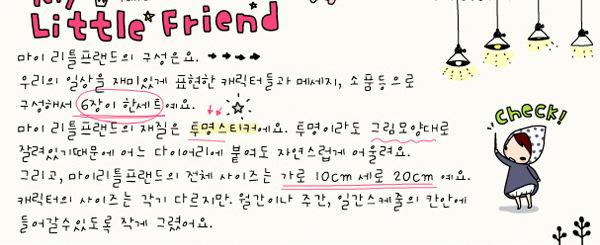 Little Friend
마이 리틀프랜드의 구성은요.
우리의 일상을 재미있게 표현한 캐릭터들과 메세지, 소품등으로
구성하셔 6장이 한세트예요.
마이 리틀프랜드의 재질은 투명스티커에요. 투명이라도 그림모양대로
잘려있기때문에 어느 다이어리에 붙여도 자연스럽게 어울려요.
그리고, 마이리틀프랜드의 전체 사이즈는 가로 10cm 세로 20cm 예요.
캐릭터의 사이즈는 각기 다르지만. 월간이나 주간, 일간스케줄의 칸안에
들어갈수있도록 작게 그렸어요.
CHECK!